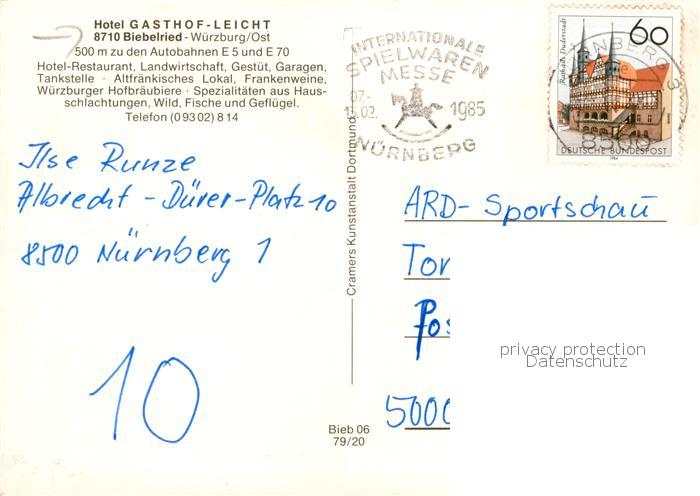 Hotel GASTHOF-LEICHT
8710 Biebelried - Würzburg/Ost
500 m zu den Autobahnen E 5 und E 70
Hotel-Restaurant, Landwirtschaft, Gestüt, Garagen,
Tankstelle · Altfränkisches Lokal, Frankenweine,
Würzburger Hofbräubiere · Spezialitäten aus Haus-
schlachtungen, Wild, Fische und Geflügel.
Telefon (0 93 02) 8 14
Ilse Runze
Albrecht-Dürer-Platz 10
8500 Nürnberg 1
10
Bieb 06
79/20
Cramers Kunstanstalt Dortmund
INTERNATIONALE
SPIELWAREN
MESSE
1985
NÜRNBERG
60
Rathaus Duderstadt
DEUTSCHE BUNDESPOST
1984
ARD-Sportschau
Tor
Pos
5000
privacy protection
Datenschutz